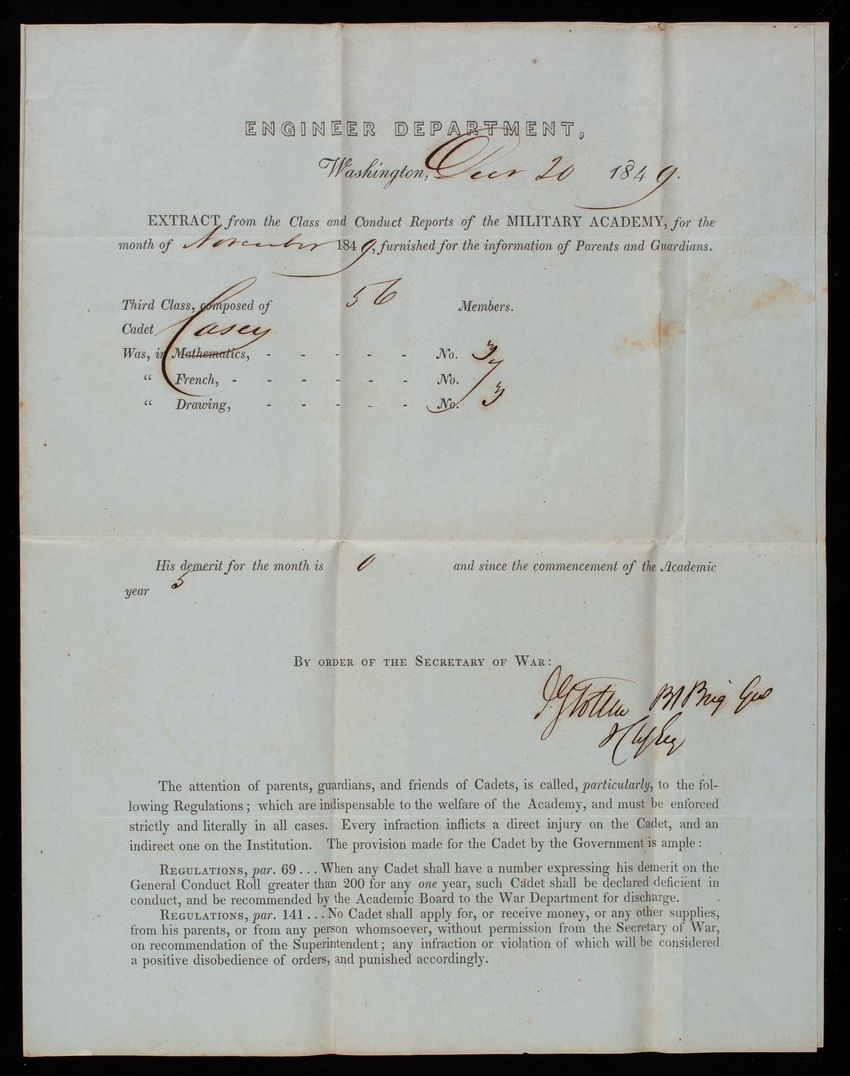 ENGINEER DEPARTMENT,
Washington, Decr 20 1849.
EXTRACT from the Class and Conduct Reports of the MILITARY ACADEMY, for the
month of November 1849, furnished for the information of Parents and Guardians.
Third Class, composed of 56 Members.
Cadet Casey
Was, in Mathematics, - - - - - No. 3
“ French, - - - - - - No. 7
“ Drawing, - - - - - No. 3
His demerit for the month is 0 and since the commencement of the Academic
year 5
By order of the Secretary of War:
J G Totten Bt Brig Gen
& Ch Eng
The attention of parents, guardians, and friends of Cadets, is called, particularly, to the fol-
lowing Regulations; which are indispensable to the welfare of the Academy, and must be enforced
strictly and literally in all cases. Every infraction inflicts a direct injury on the Cadet, and an
indirect one on the Institution. The provision made for the Cadet by the Government is ample:
Regulations, par. 69 . . . When any Cadet shall have a number expressing his demerit on the
General Conduct Roll greater than 200 for any one year, such Cadet shall be declared deficient in
conduct, and be recommended by the Academic Board to the War Department for discharge.
Regulations, par. 141 . . . No Cadet shall apply for, or receive money, or any other supplies,
from his parents, or from any person whomsoever, without permission from the Secretary of War,
on recommendation of the Superintendent; any infraction or violation of which will be considered
a positive disobedience of orders, and punished accordingly.